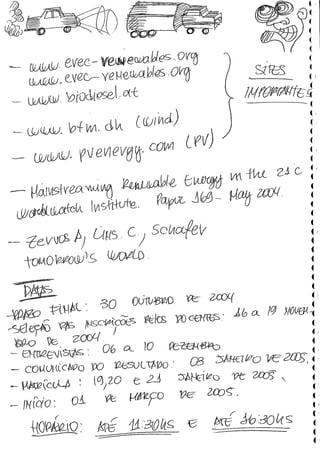 - www.erec-renewables.org
www.erec-renewables.org
- www.biodiesel.at
- www.btm.dk (wind)
- www.pvenergy.com (PV)
SITES
IMPORTANTES
- Mainstreaming Renewable Energy in the 21 C
Worldwatch Institute. Paper 169 - May 2004.
- Zervos A, Lins. C, Schafer
tomorrow's world.
DATAS
- PRAZO FINAL: 30 OUTUBRO DE 2004
- SELEÇÃO DAS INSCRIÇÕES PELOS DOCENTES: 16 a 19 NOVEM-
BRO DE 2004
- ENTREVISTAS: 06 a 10 DEZEMBRO
- COMUNICADO DO RESULTADO: 03 JANEIRO DE 2005,
- MATRÍCULA: 19, 20 E 21 JANEIRO DE 2005.
- INÍCIO: 01 DE MARÇO DE 2005.
HORÁRIO: ATÉ 11:30HS E ATÉ 16:30HS